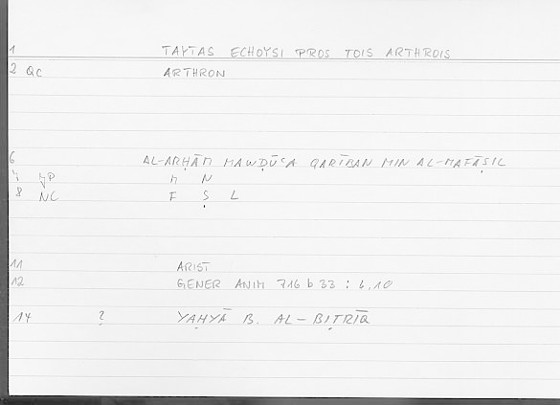 1 TAYTAS ECHOYSI PROS TOIS ARTHROIS
2 QC ARTHRON
6 AL-ARḤĀM MAWḌŪʿA QARĪBAN MIN AL-MAFĀṢIL
7 M N
8 NC F Ṣ L
11 ARIST
12 GENER ANIM 716 b 33 : 6,10
14 ? YAḤYĀ B. AL-BIṬRĪQ